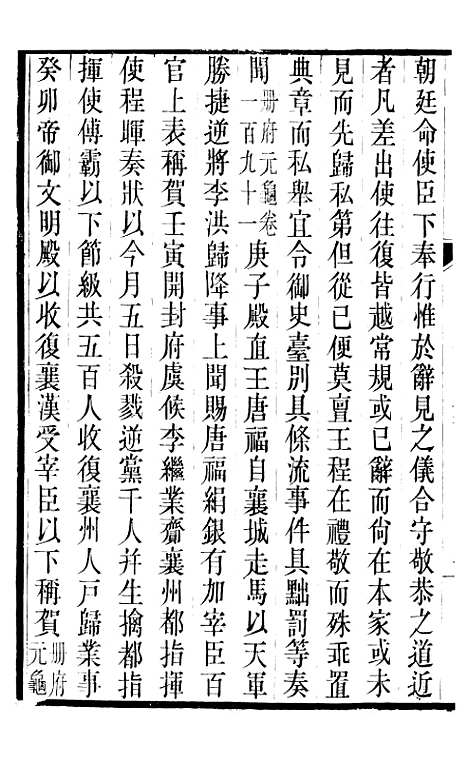 朝廷命使臣下奉行惟於辭見之儀合守敬恭之道近
者凡差出使往復皆越常規或已辭而尙在本家或未
見而先歸私第但從已便莫亶王程在禮敬而殊乖置
典章而私舉宜令御史臺別具條流事件具黜罰等奏
聞冊府元龜卷一百九十一庚子殿直王唐福自襄城走馬以天軍
勝捷逆將李洪歸降事上聞賜唐福絹銀有加宰臣百
官上表稱賀壬寅開封府虞候李繼業齎襄州都指揮
使程暉奏狀以今月五日殺戮逆黨千人幷生擒都指
揮使傅霸以下節級共五百人收復襄州人戸歸業事
癸卯帝御文明殿以收復襄漢受宰臣以下稱賀冊府元龜